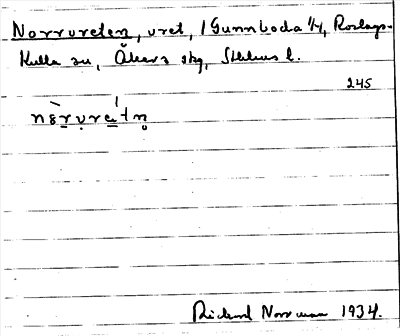 Norrvreten, vret, 1 Gunnboda 1/4, Roslags-
Kulla sn, Åkers skg, Sthlms l.
245
Rickard Norrman 1934.